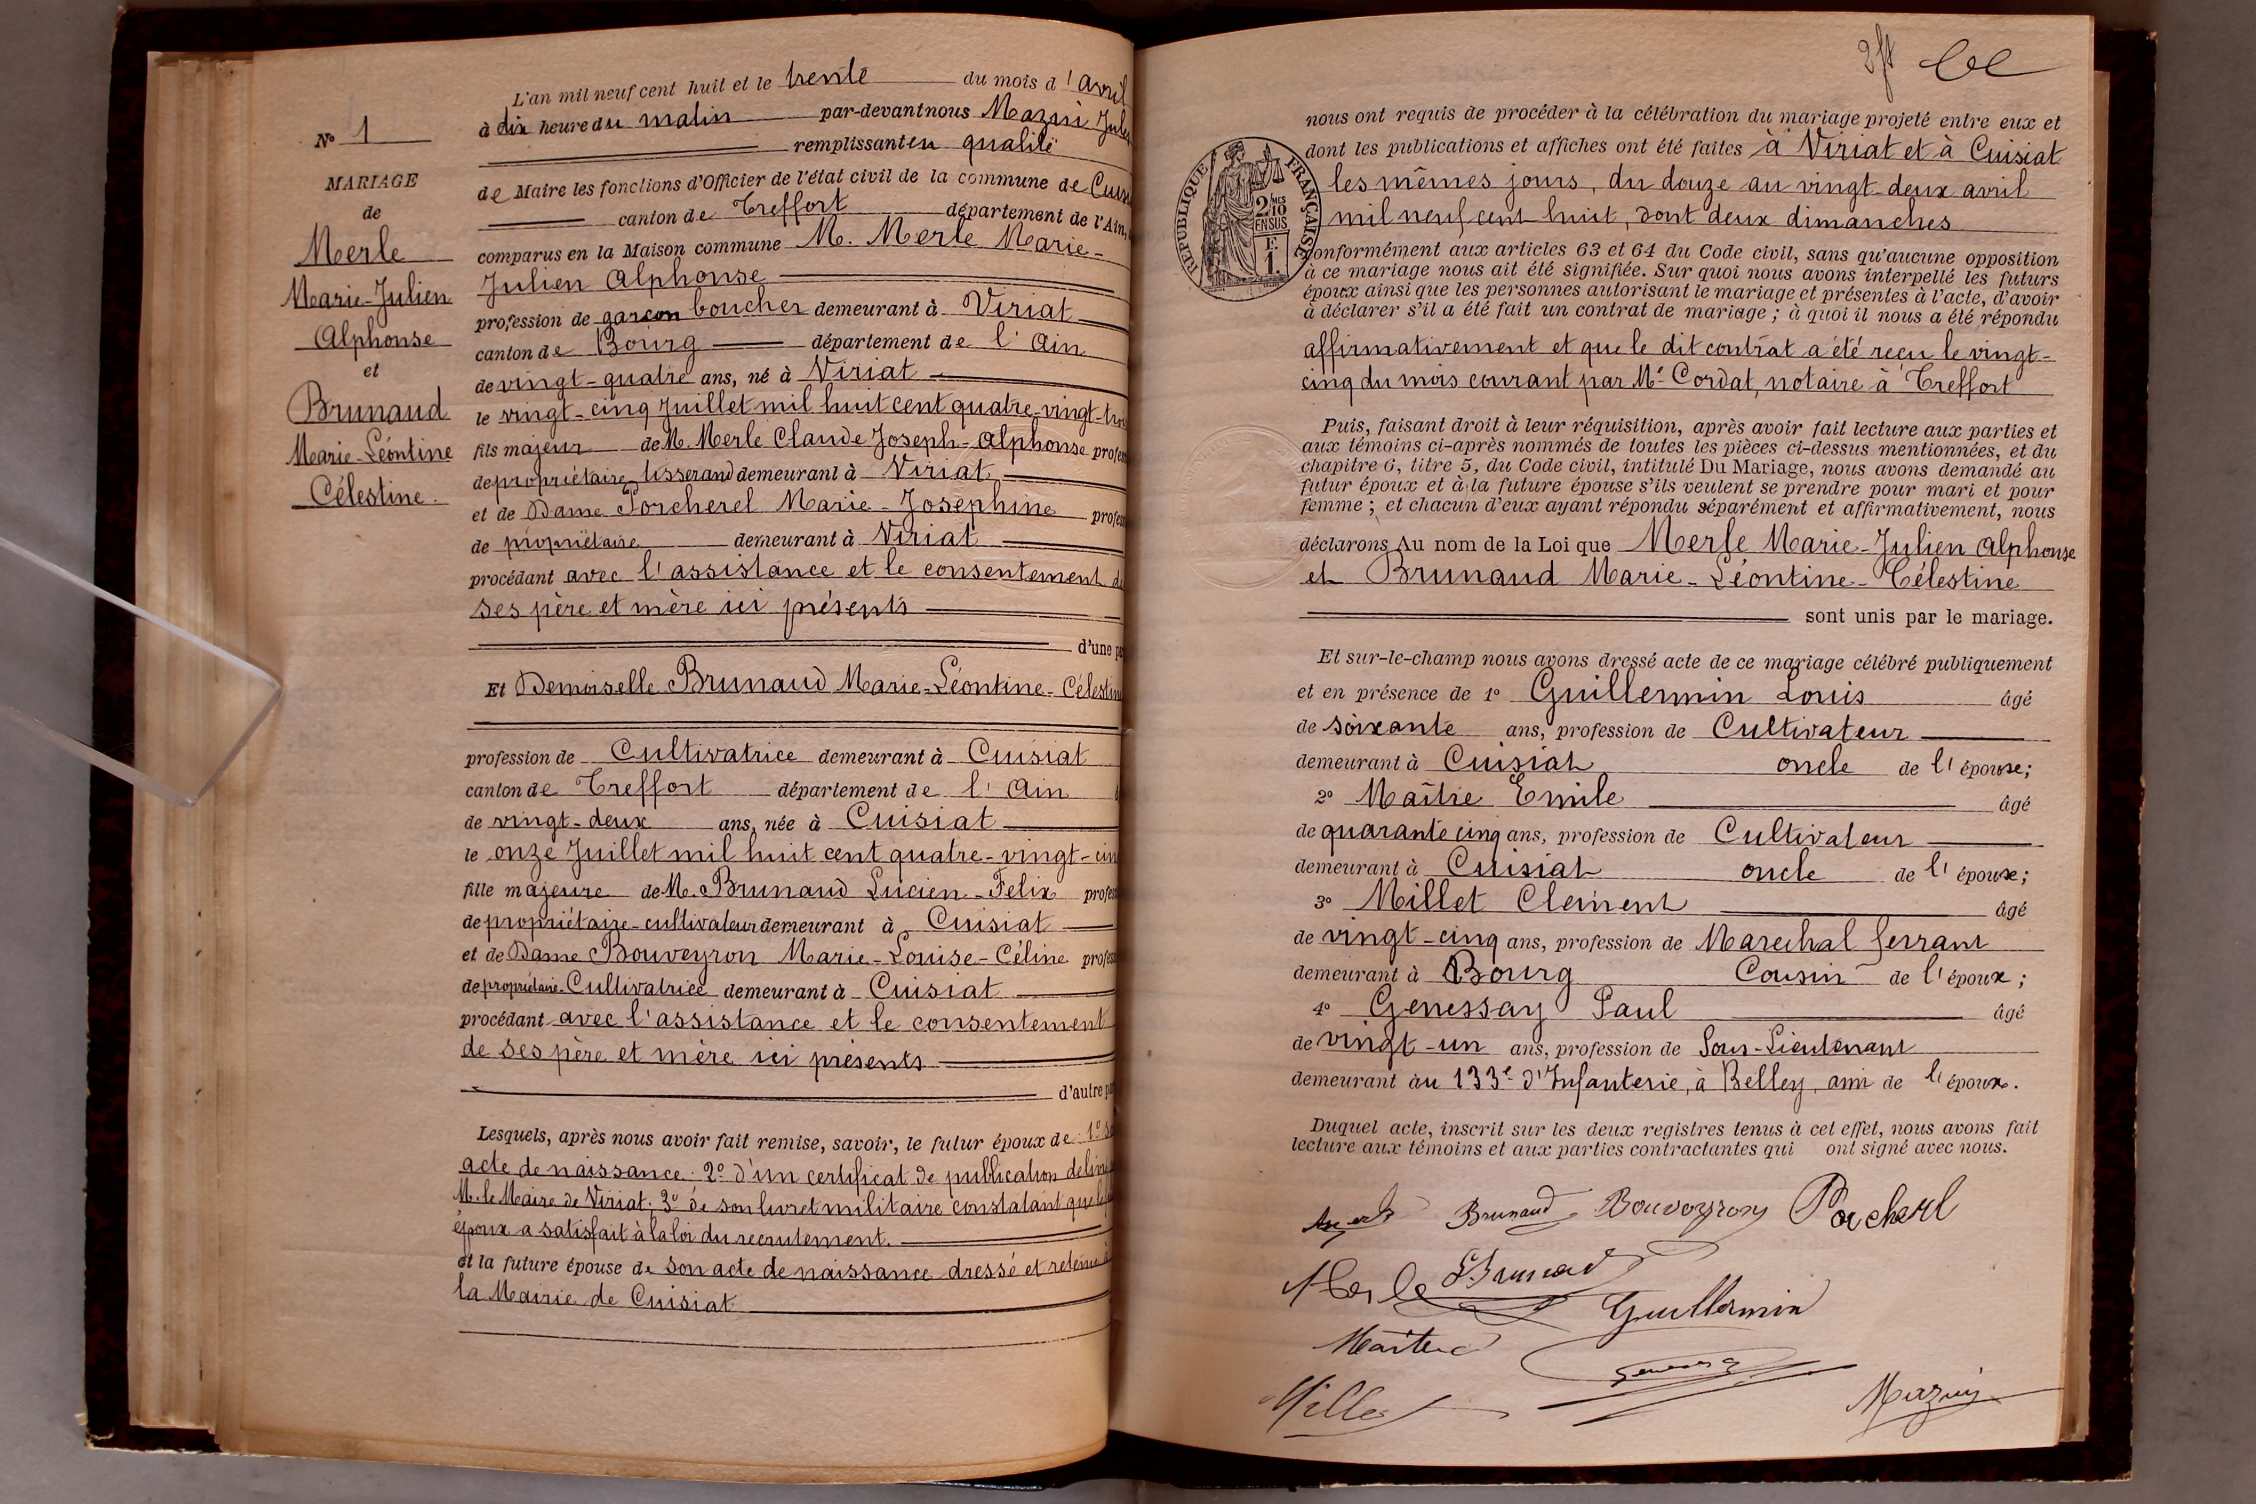 L'an mil neuf cent huit et le trente du mois d'avril
à dix heure du matin par-devant nous Mazui Jules
remplissant en qualité
de Maire les fonctions d'Officier de l'état civil de la commune de
canton de Treffort département de l'Ain,
comparus en la Maison commune M. Merle Marie-
Julien Alphonse
profession de garçon boucher demeurant à Viriat
canton de Bourg département de l'Ain
de vingt-quatre ans, né à Viriat
le vingt-cinq Juillet mil huit cent quatre-vingt-trois
fils majeur de M. Merle Claude Joseph-Alphonse
de propriétaire tisserand demeurant à Viriat
et de Dame Porcherel Marie-Joséphine
de propriétaire demeurant à Viriat
procédant avec l'assistance et le consentement de
ses père et mère ici présents
d'une
Et Demoiselle Brunaud Marie-Léontine-Célestine
profession de Cultivatrice demeurant à Cuisiat
canton de Treffort département de l'Ain
de vingt-deux ans, née à Cuisiat
le onze Juillet mil huit cent quatre-vingt-cinq
fille majeure de M. Brunaud Lucien-Felix
de propriétaire-cultivateur demeurant à Cuisiat
et de Dame Bouveyron Marie-Louise-Céline
de propriétaire-Cultivatrice demeurant à Cuisiat
procédant avec l'assistance et le consentement
de ses père et mère ici présents
d'autre
Lesquels, après nous avoir fait remise, savoir, le futur époux de 1° son
acte de naissance. 2° d'un certificat de publication
M. le Maire de Viriat; 3° de son livret militaire constatant que le
époux a satisfait à la loi du recrutement.
et la future épouse de son acte de naissance dressé et retenu à
la Mairie de Cuisiat
N° 1
MARIAGE
de
Merle
Marie-Julien
Alphonse
et
Brunaud
Marie-Léontine
Célestine.
nous ont requis de procéder à la célébration du mariage projeté entre eux et
dont les publications et affiches ont été faites à Viriat et à Cuisiat
les mêmes jours, du douze au vingt deux avril
mil neuf cent huit, dont deux dimanches
conformément aux articles 63 et 64 du Code civil, sans qu'aucune opposition
à ce mariage nous ait été signifiée. Sur quoi nous avons interpellé les futurs
époux ainsi que les personnes autorisant le mariage et présentes à l'acte, d'avoir
à déclarer s'il a été fait un contrat de mariage; à quoi il nous a été répondu
affirmativement et que le dit contrat a été reçu le vingt-
cinq du mois courant par Me Cordat, notaire à Treffort
Puis, faisant droit à leur réquisition, après avoir fait lecture aux parties et
aux témoins ci-après nommés de toutes les pièces ci-dessus mentionnées, et du
chapitre 6, titre 5, du Code civil, intitulé Du Mariage, nous avons demandé au
futur époux et à la future épouse s'ils veulent se prendre pour mari et pour
femme; et chacun d'eux ayant répondu séparément et affirmativement, nous
déclarons Au nom de la Loi que Merle Marie-Julien Alphonse
et Brunaud Marie-Léontine-Célestine
sont unis par le mariage.
Et sur-le-champ nous avons dressé acte de ce mariage célébré publiquement
et en présence de 1° Guillermin Louis âgé
de soixante ans, profession de Cultivateur
demeurant à Cuisiat oncle de l'épouse;
2° Maître Emile âgé
de quarante cinq ans, profession de Cultivateur
demeurant à Cuisiat oncle de l'épouse;
3° Millet Clément âgé
de vingt-cinq ans, profession de Marechal ferrant
demeurant à Bourg Cousin de l'époux;
4° Genessay Paul âgé
de vingt-un ans, profession de Sous-Lieutenant
demeurant au 133e d'Infanterie, à Belley, ami de l'époux.
Duquel acte, inscrit sur les deux registres tenus à cet effet, nous avons fait
lecture aux témoins et aux parties contractantes qui ont signé avec nous.
Brunaud Bouveyron Porcherel
Merle Brunaud
Guillermin
Maître
Millet
Mazuy
RÉPUBLIQUE FRANÇAISE
2 MES
10
EN SUS
F.
1.